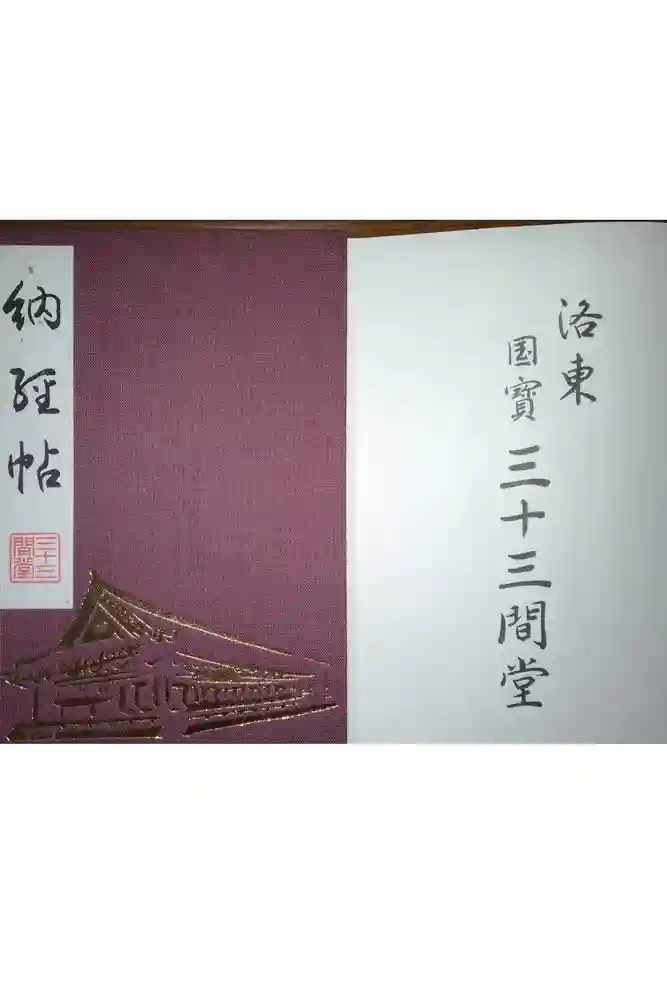 納經帖
三十三間堂
洛東
国寳
三十三間堂